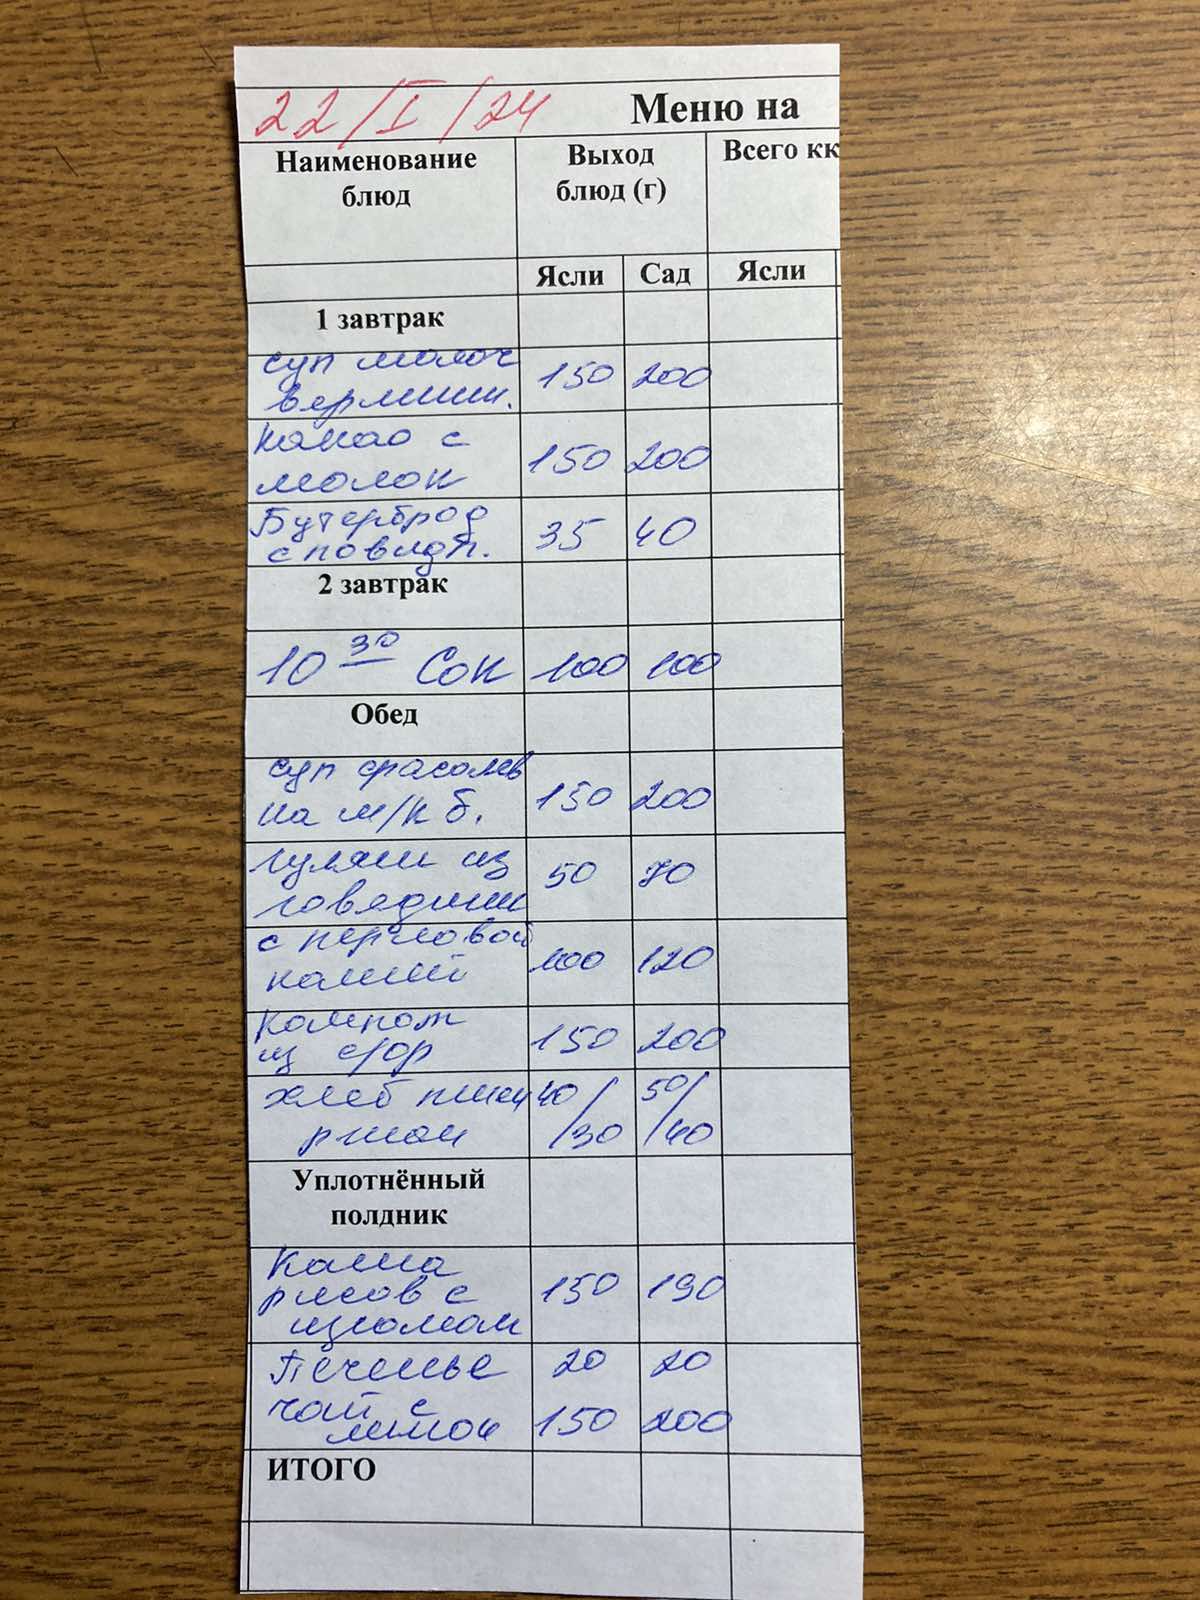 22/I/24 Меню на
Наименование блюд Выход блюд (г) Всего кк
Ясли Сад Ясли
1 завтрак
суп молоч
вермиш. 150 200
какао с
молок 150 200
Бутерброд
с повидл. 35 40
2 завтрак
10 30 Сок 100 100
Обед
суп фасолев
на м/к б. 150 200
гуляш из
говядины 50 70
с перловой
кашей 100 120
Компот
из с/фр 150 200
хлеб пшен 40/30 50/40
ржан
Уплотнённый
полдник
Каша
рисов с
изюмом 150 190
Печенье 20 20
чай с
лимон 150 200
ИТОГО